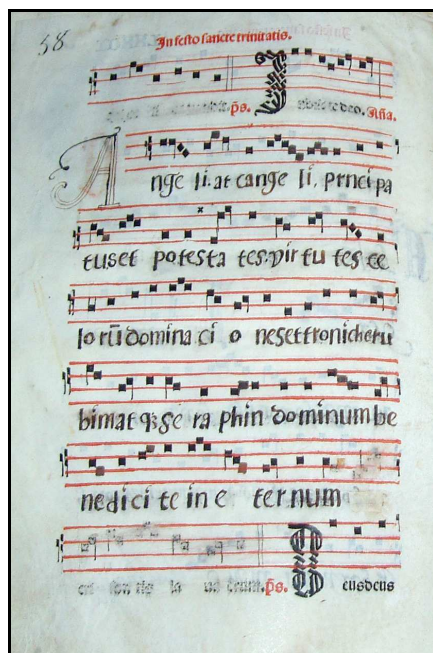 58
In festo sancte trinitatis.
p̄s. Jubilate deo. Aña.
Ange li. at cange li. prnci pa
tus et potesta tes. vir tu tes ce
lo rū domina ci o nes et troni cheru
bim at q3 se ra phin dominum be
nedici te in e ter num
p̄s. Deus deus